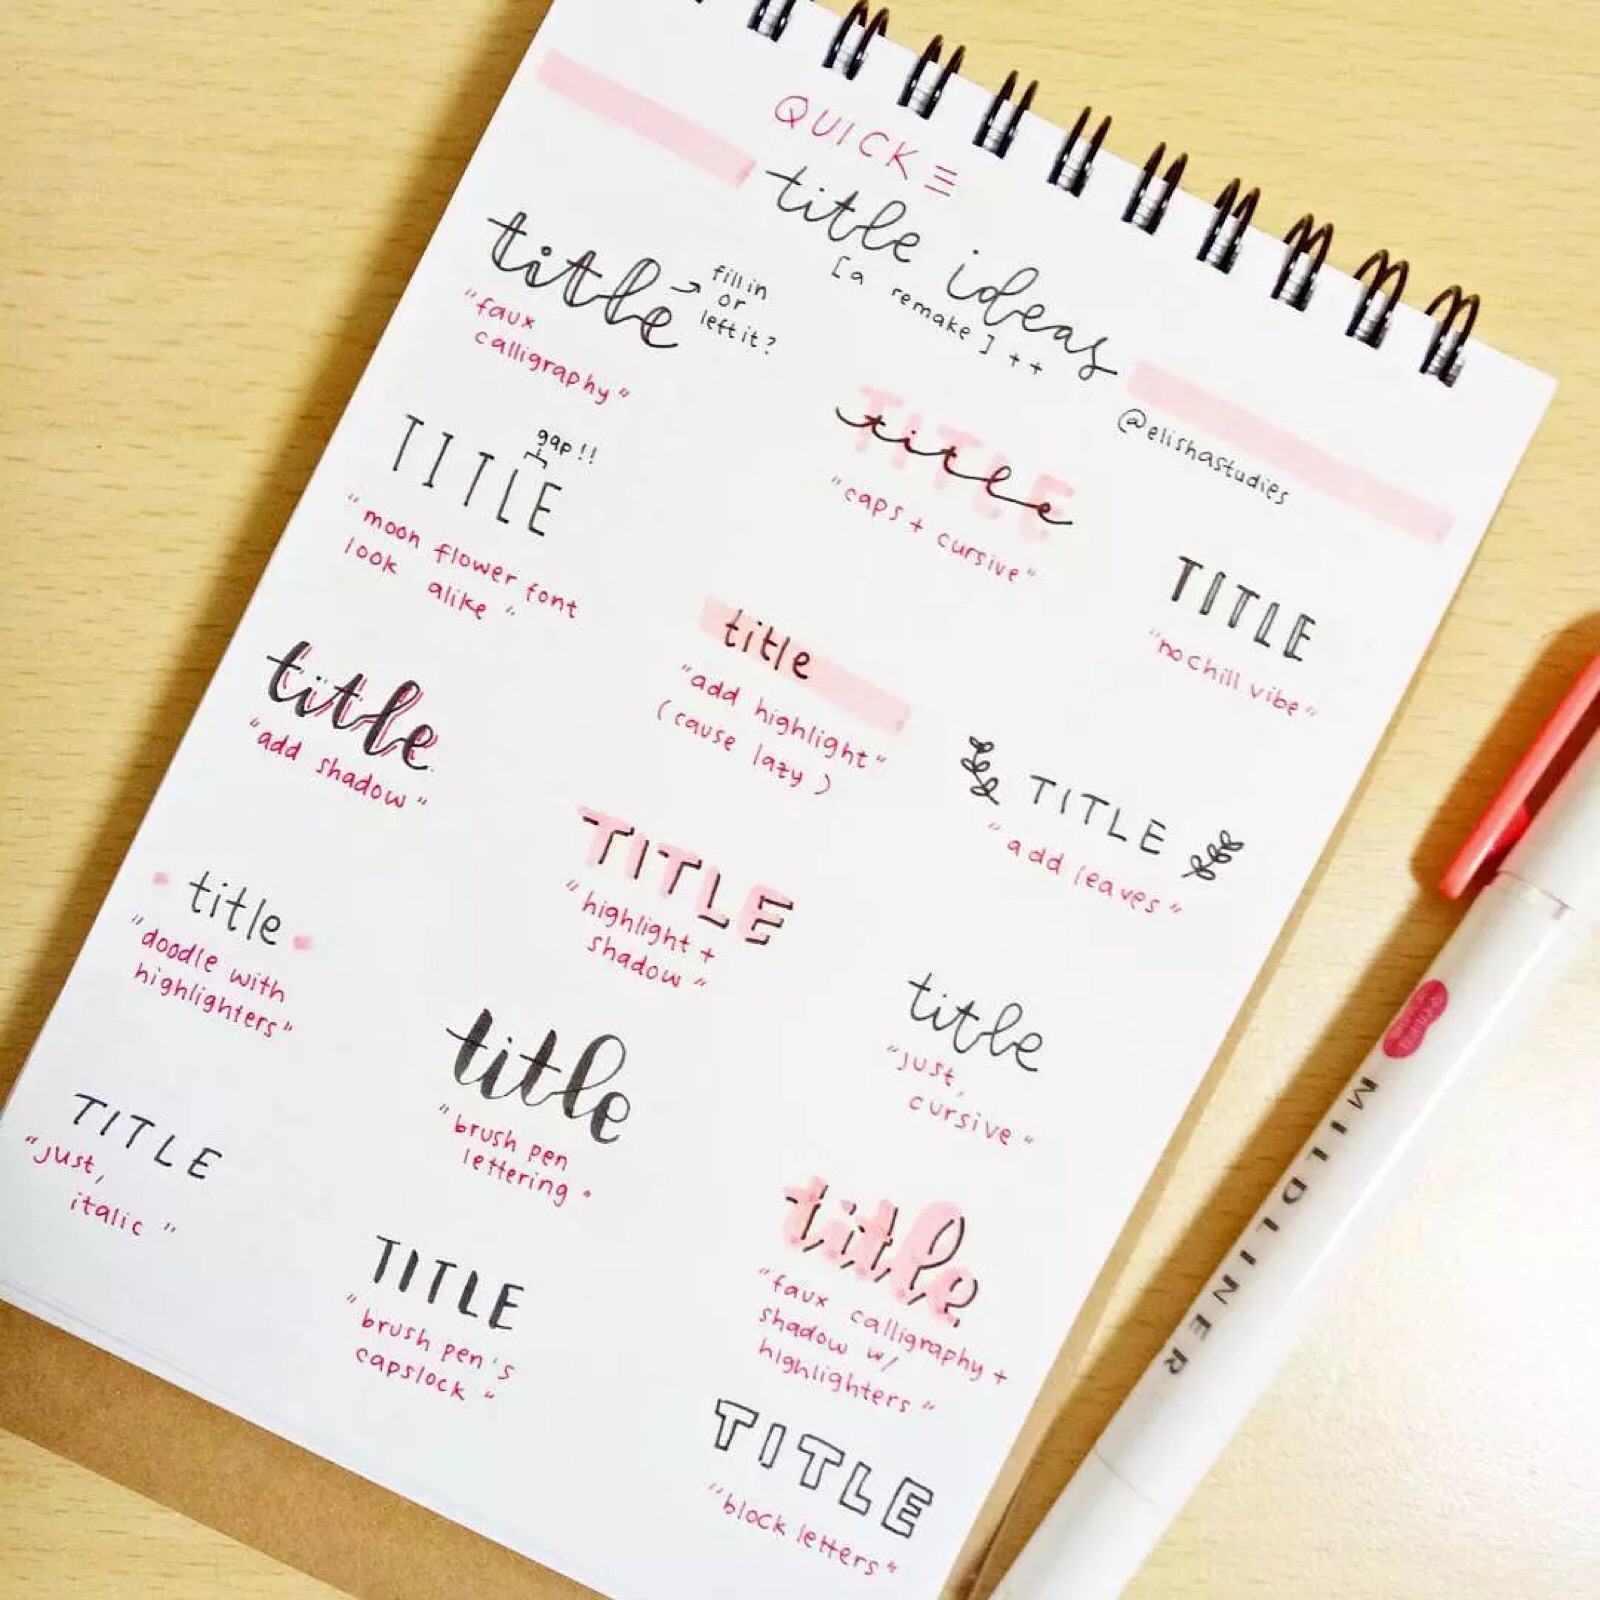 QUICK
title ideas
[a remake] ++
@elishastudies
title
fill in
or
left it?
"faux
calligraphy"
TITLE
title
"caps + cursive"
TITLE
gap!!
"moon flower font
look alike"
TITLE
"no chill vibe"
title
"add highlight"
(cause lazy)
title
"add shadow"
TITLE
"add leaves"
TITLE
"highlight +
shadow"
title
"doodle with
highlighters"
title
"just,
cursive"
title
"brush pen
lettering"
TITLE
"just,
italic"
title
"faux calligraphy +
shadow w/
highlighters"
TITLE
"brush pen's
capslock"
TITLE
"block letters"
MILDLINER